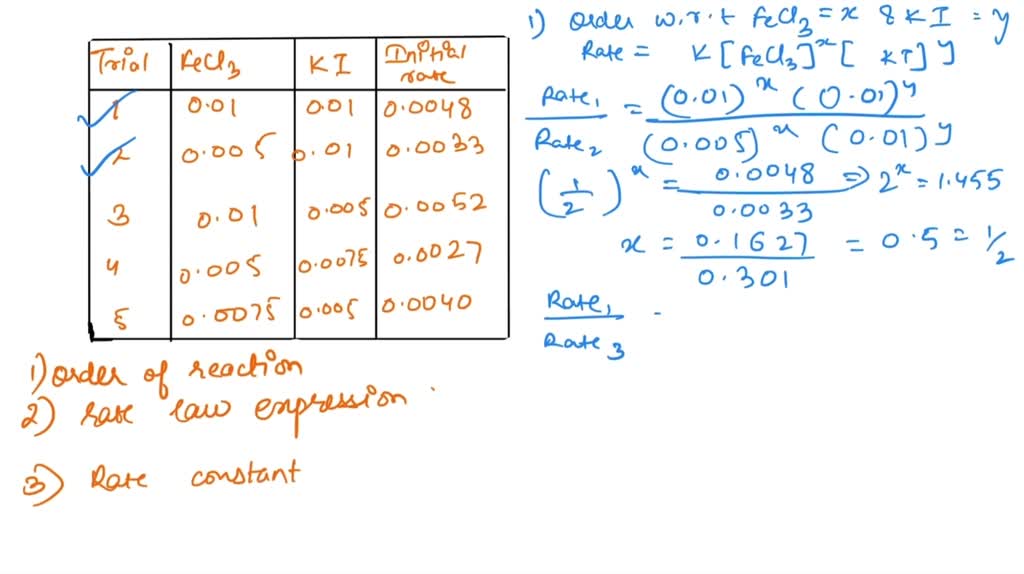 Trial FeCl3 KI Initial rate
1 0.01 0.01 0.0048
2 0.005 0.01 0.0033
3 0.01 0.005 0.0052
4 0.005 0.0075 0.0027
5 0.0075 0.005 0.0040
1) Order of reaction
2) rate law expression
3) Rate constant
1) Order w.r.t FeCl3 = x & KI = y
Rate = K [FeCl3]^x [ KI] y
Rate1 / Rate2 = (0.01)^x (0.01)^y / (0.005)^x (0.01) y
(1/2)^x = 0.0048 / 0.0033 => 2^x = 1.455
x = 0.1627 / 0.301 = 0.5 = 1/2
Rate1 / Rate3 =